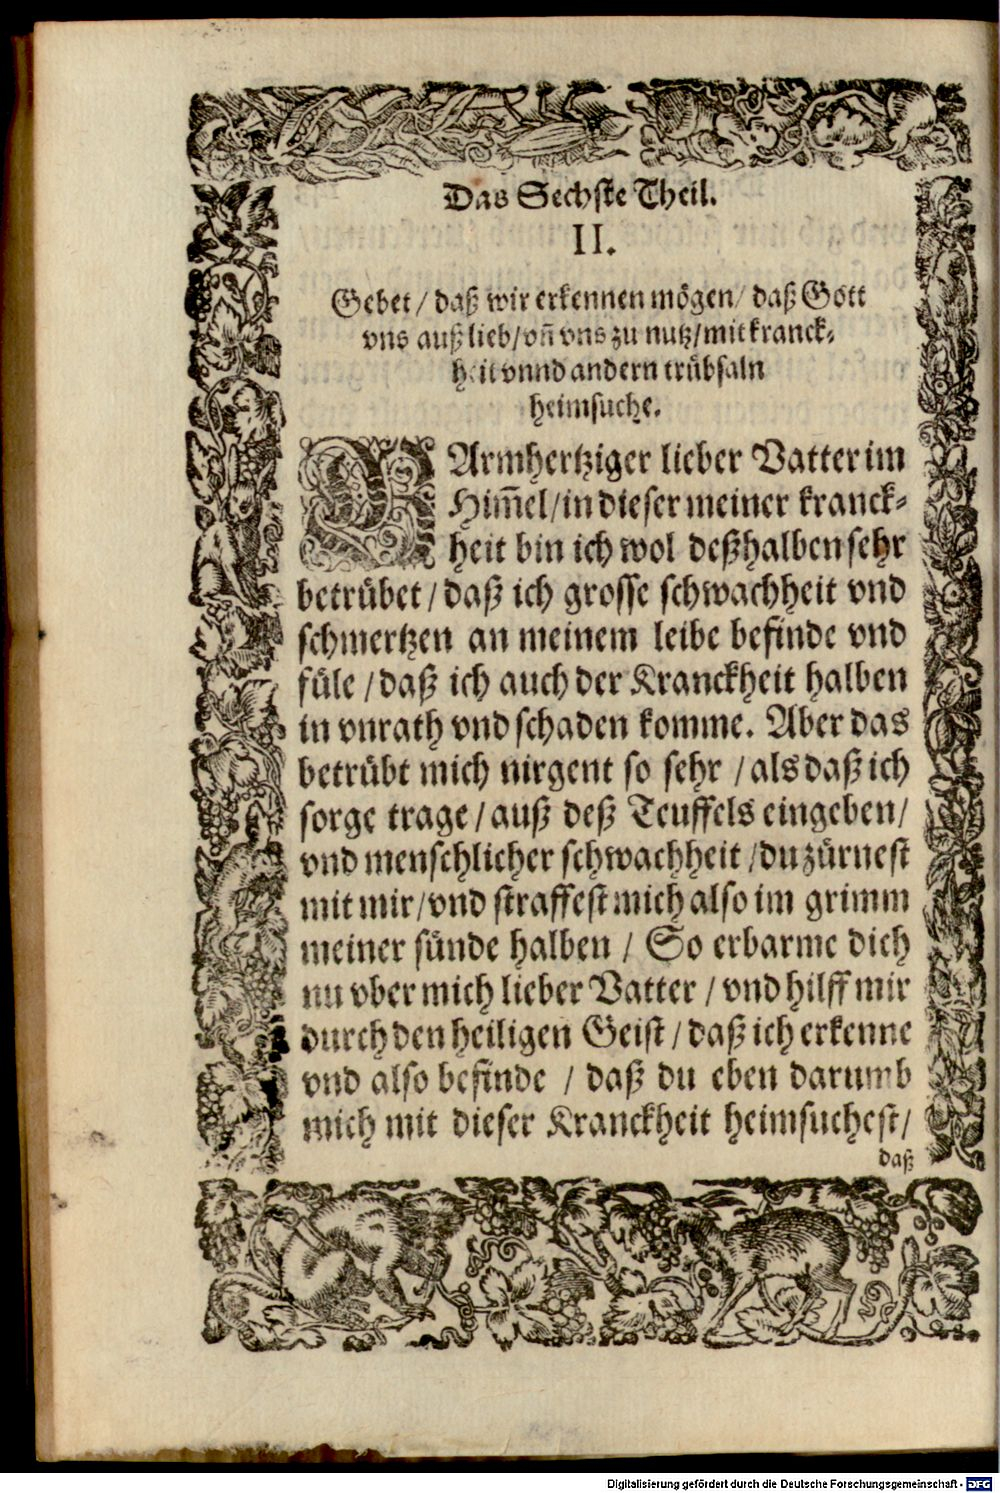 Das Sechste Theil.
II.
Gebet / daß wir erkennen mögen / daß Gott
vns auß lieb / vñ vns zu nutz / mit kranck-
heit vnnd andern trübsaln
heimsuche.
BArmhertziger lieber Vatter im
Him̃el / in dieser meiner kranck-
heit bin ich wol deßhalben sehr
betrübet / daß ich grosse schwachheit vnd
schmertzen an meinem leibe befinde vnd
füle / daß ich auch der Kranckheit halben
in vnrath vnd schaden komme. Aber das
betrübt mich nirgent so sehr / als daß ich
sorge trage / auß deß Teuffels eingeben /
vnd menschlicher schwachheit / du zürnest
mit mir / vnd straffest mich also im grimm
meiner sünde halben / So erbarme dich
nu vber mich lieber Vatter / vnd hilff mir
durch den heiligen Geist / daß ich erkenne
vnd also befinde / daß du eben darumb
mich mit dieser Kranckheit heimsuchest /
daß
Digitalisierung gefördert durch die Deutsche Forschungsgemeinschaft - DFG